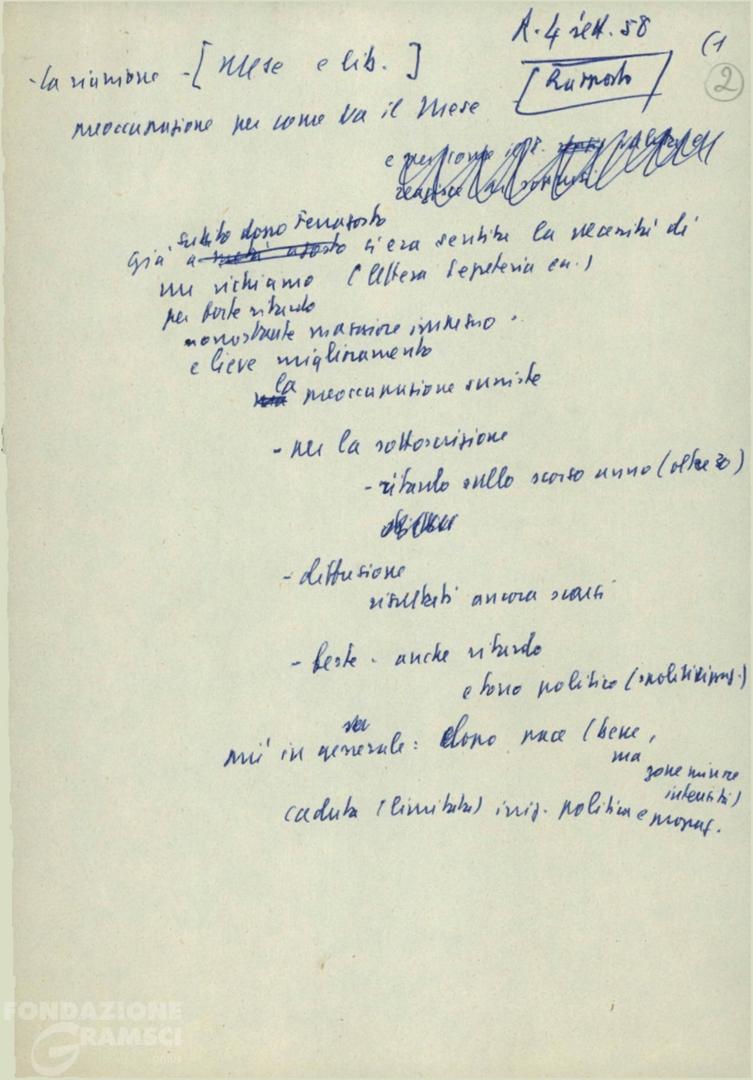 A. 4 sett. 58
(1
2
- La riunione - [ Mese e lib. ]
[ Rapporto
preoccupazione per come va il Mese
e per come
subito dopo Ferragosto
già a metà agosto si era sentita la necessità di
un richiamo (lettera Segreteria ecc.)
per forte ritardo
nonostante maggiore impegno.
e lieve miglioramento
la preoccupazione sussiste
- per la sottoscrizione
- ritardo sullo scorso anno (oltre 30)
- diffusione
risultati ancora scarsi
- feste - anche ritardo
e tono politico (spoliticizzaz.)
più in generale: dopo pace (bene,
ma zone minore
intensità)
caduta (limitata) iniz. politica e propag.
FONDAZIONE
GRAMSCI